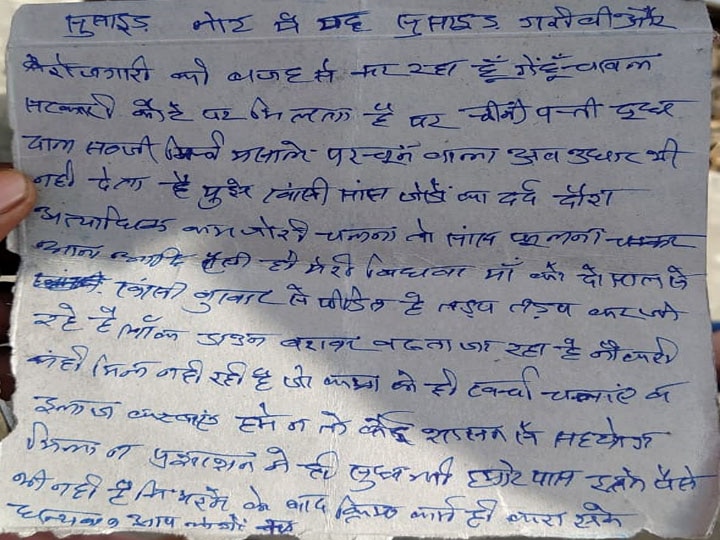 सुसाइड नोट मैं यह सुसाइड गरीबी और
बेरोजगारी की वजह से कर रहा हूँ गेहूँ चावल
सरकारी कोटे पर मिलता है पर चीनी पत्ती दूध
दाल सब्जी मिर्च मसाले परचून वाला अब उधार भी
नही देता है मुझे खांसी सांस जोडों का दर्द दौरा
अत्याधिक कमजोरी चलना तो सांस फूलना चक्कर
आना आदि है मेरी विधवा माँ भी दो साल से
खांसी बुखार से पीडित है तड़प तड़प कर जी
रहे है लॉक डाउन बराबर बढता जा रहा है नौकरी
कही मिल नही रही है जो काम करके ही खर्चा चलाएं व
इलाज कराएं हमे न तो कोई शासन से सहयोग
मिला न प्रशाशन ने ही सुध ली हमारे पास इतने पैसे
भी नही है कि मरने के बाद क्रिया कर्म ही करा सके
आप लोगों